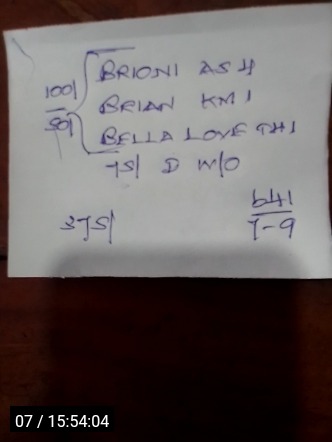 100/
50/
BRIONI ASH
BRIAN KMI
BELLA LOVE THI
75/ D W/O
375/
641
7-9
07 / 15:54:04